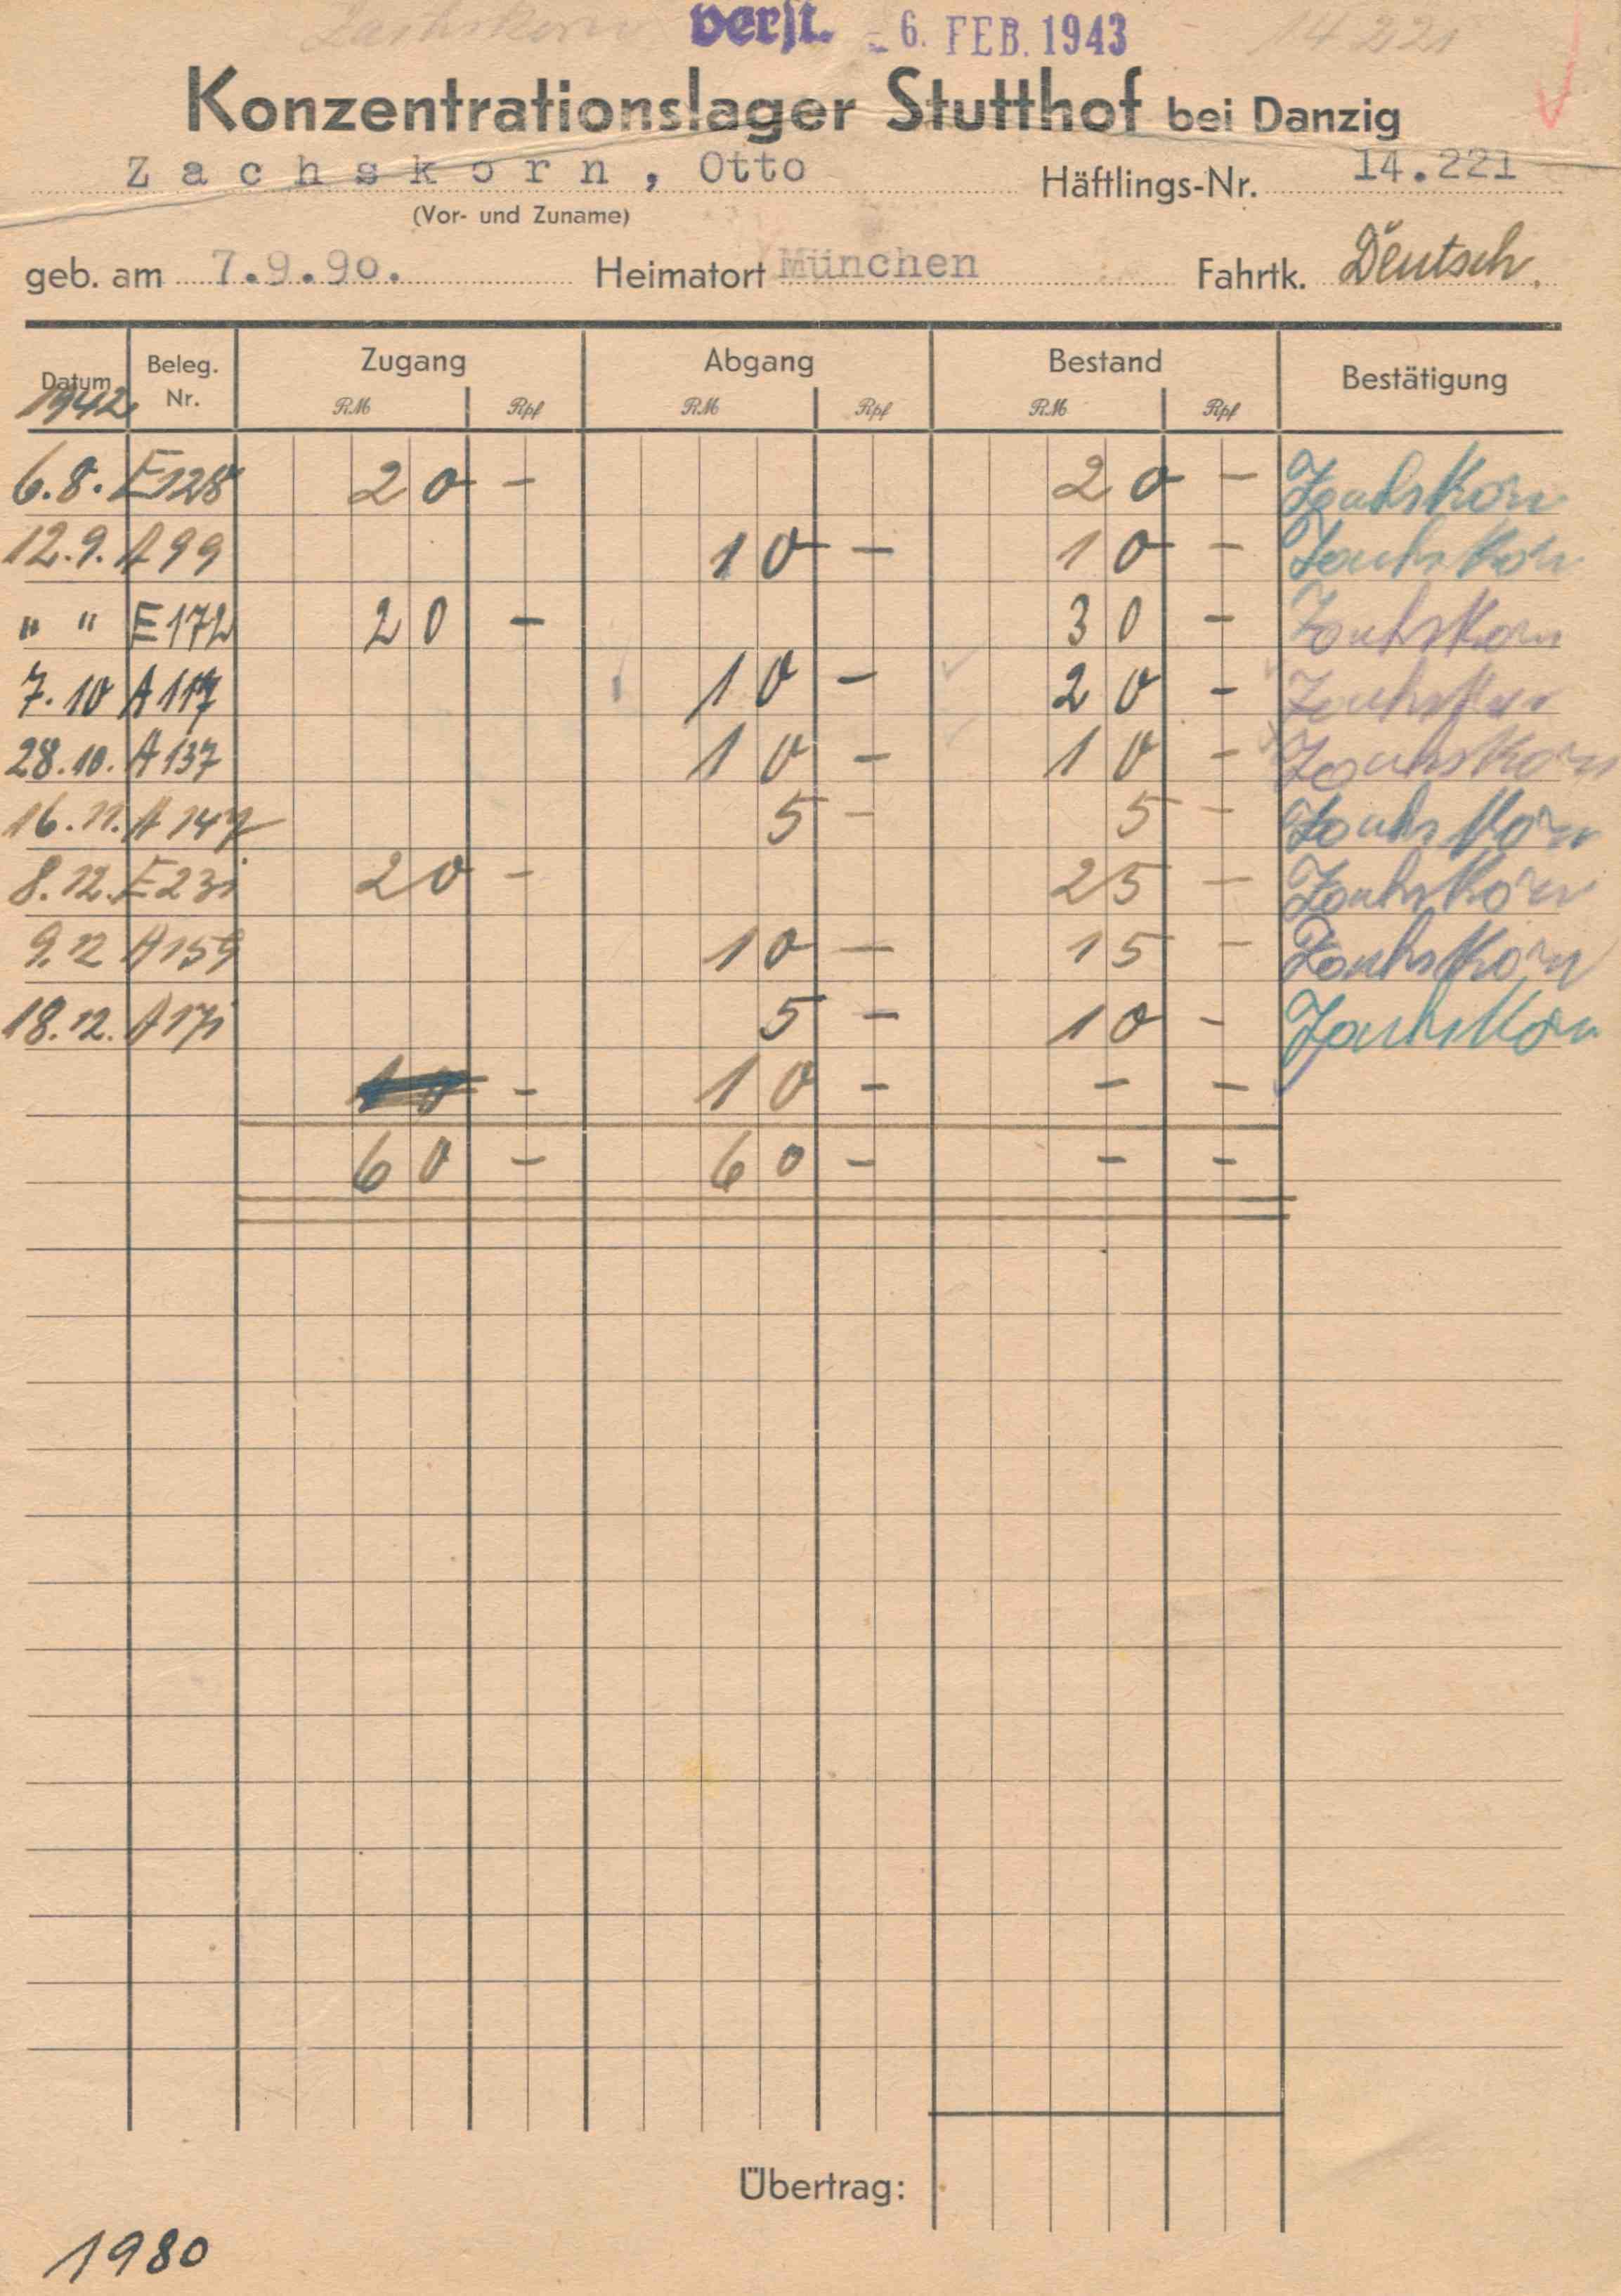 Zachskorn verst. - 6. FEB. 1943 14221
Konzentrationslager Stutthof bei Danzig
Zachskorn, Otto Häftlings-Nr. 14.221
(Vor- und Zuname)
geb. am 7.9.90. Heimatort München Fahrtk. Deutsch.
Datum Beleg. Nr. Zugang Abgang Bestand Bestätigung
1942 RM Rpf RM Rpf RM Rpf
6.8. E128 20 - 20 - Zachskorn
12.9. A99 10 - 10 - Zachskorn
" " E172 20 - 30 - Zachskorn
7.10 A117 10 - 20 - Zachskorn
28.10. A137 10 - 10 - Zachskorn
16.11. A147 5 - 5 - Zachskorn
8.12. E231 20 - 25 - Zachskorn
9.12 A159 10 - 15 - Zachskorn
18.12. A171 5 - 10 - Zachskorn
- 10 - - -
60 - 60 - - -
Übertrag:
1980